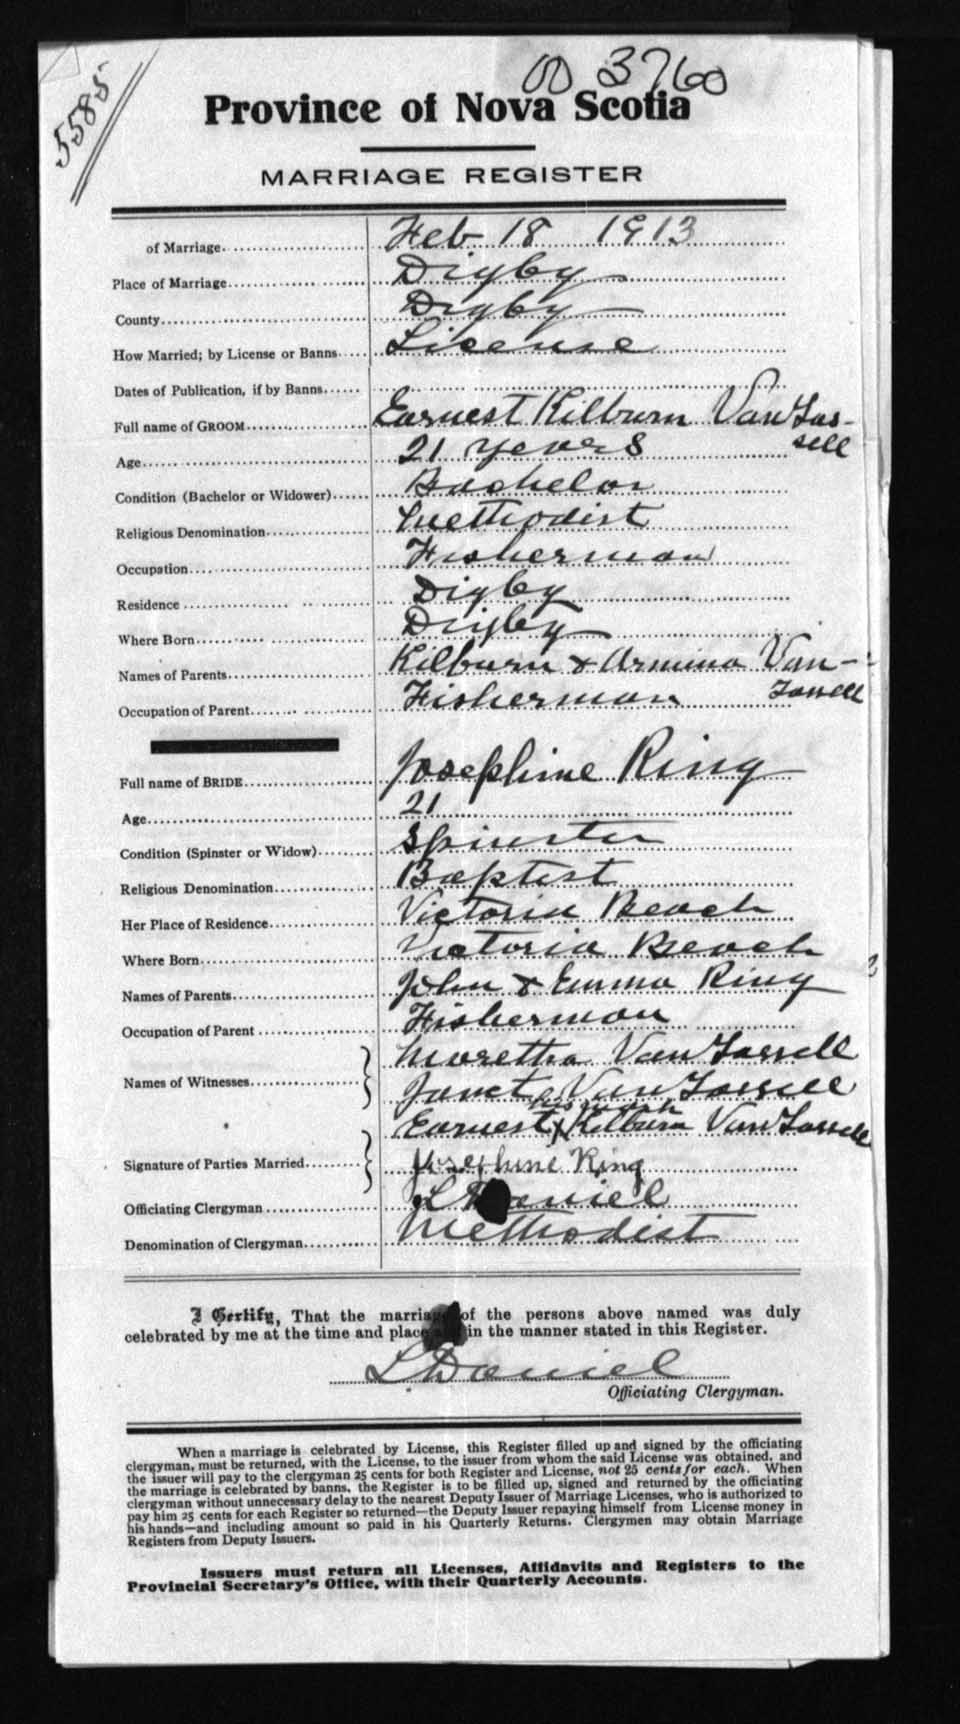 5585
00 3760
Province of Nova Scotia
MARRIAGE REGISTER
of Marriage Feb 18 1913
Place of Marriage Digby
County Digby
How Married; by License or Banns License
Dates of Publication, if by Banns
Full name of GROOM Earnest Kilburn VanTas-
sell
Age 21 years
Condition (Bachelor or Widower) Bachelor
Religious Denomination Methodist
Occupation Fisherman
Residence Digby
Where Born Digby
Names of Parents Kilburn & Armina Van-
Tassell
Occupation of Parent Fisherman
Full name of BRIDE Josephine Ring
Age 21
Condition (Spinster or Widow) Spinster
Religious Denomination Baptist
Her Place of Residence Victoria Beach
Where Born Victoria Beach
Names of Parents John & Emma Ring
Occupation of Parent Fisherman
Names of Witnesses Maretha VanTassell
Janet VanTassell
his mark
Earnest X Kilburn VanTassell
Signature of Parties Married Josephine Ring
Officiating Clergyman L Daniel
Denomination of Clergyman Methodist
I Certify, That the marriage of the persons above named was duly
celebrated by me at the time and place and in the manner stated in this Register.
L Daniel
Officiating Clergyman.
When a marriage is celebrated by License, this Register filled up and signed by the officiating
clergyman, must be returned, with the License, to the issuer from whom the said License was obtained, and
the issuer will pay to the clergyman 25 cents for both Register and License, not 25 cents for each. When
the marriage is celebrated by banns, the Register is to be filled up, signed and returned by the officiating
clergyman without unnecessary delay to the nearest Deputy Issuer of Marriage Licenses, who is authorized to
pay him 25 cents for each Register so returned—the Deputy Issuer repaying himself from License money in
his hands—and including amount so paid in his Quarterly Returns. Clergymen may obtain Marriage
Registers from Deputy Issuers.
Issuers must return all Licenses, Affidavits and Registers to the
Provincial Secretary's Office, with their Quarterly Accounts.